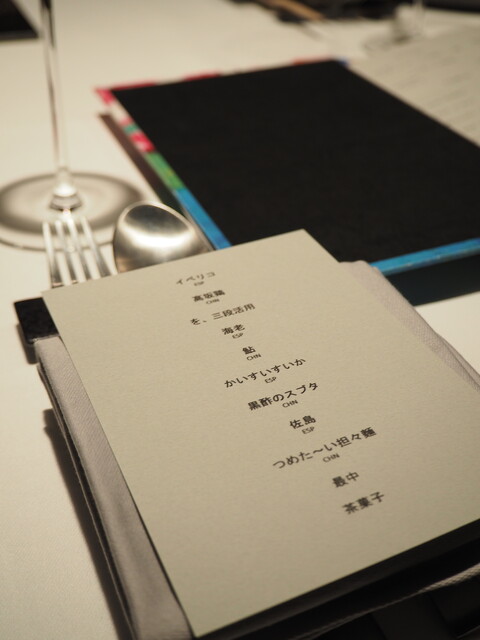 イベリコ
ESP
高坂鶏
CHN
を、三段活用
海老
ESP
鮎
CHN
かいすいすいか
ESP
黒酢のスブタ
CHN
佐島
ESP
つめた〜い担々麺
CHN
最中
茶菓子